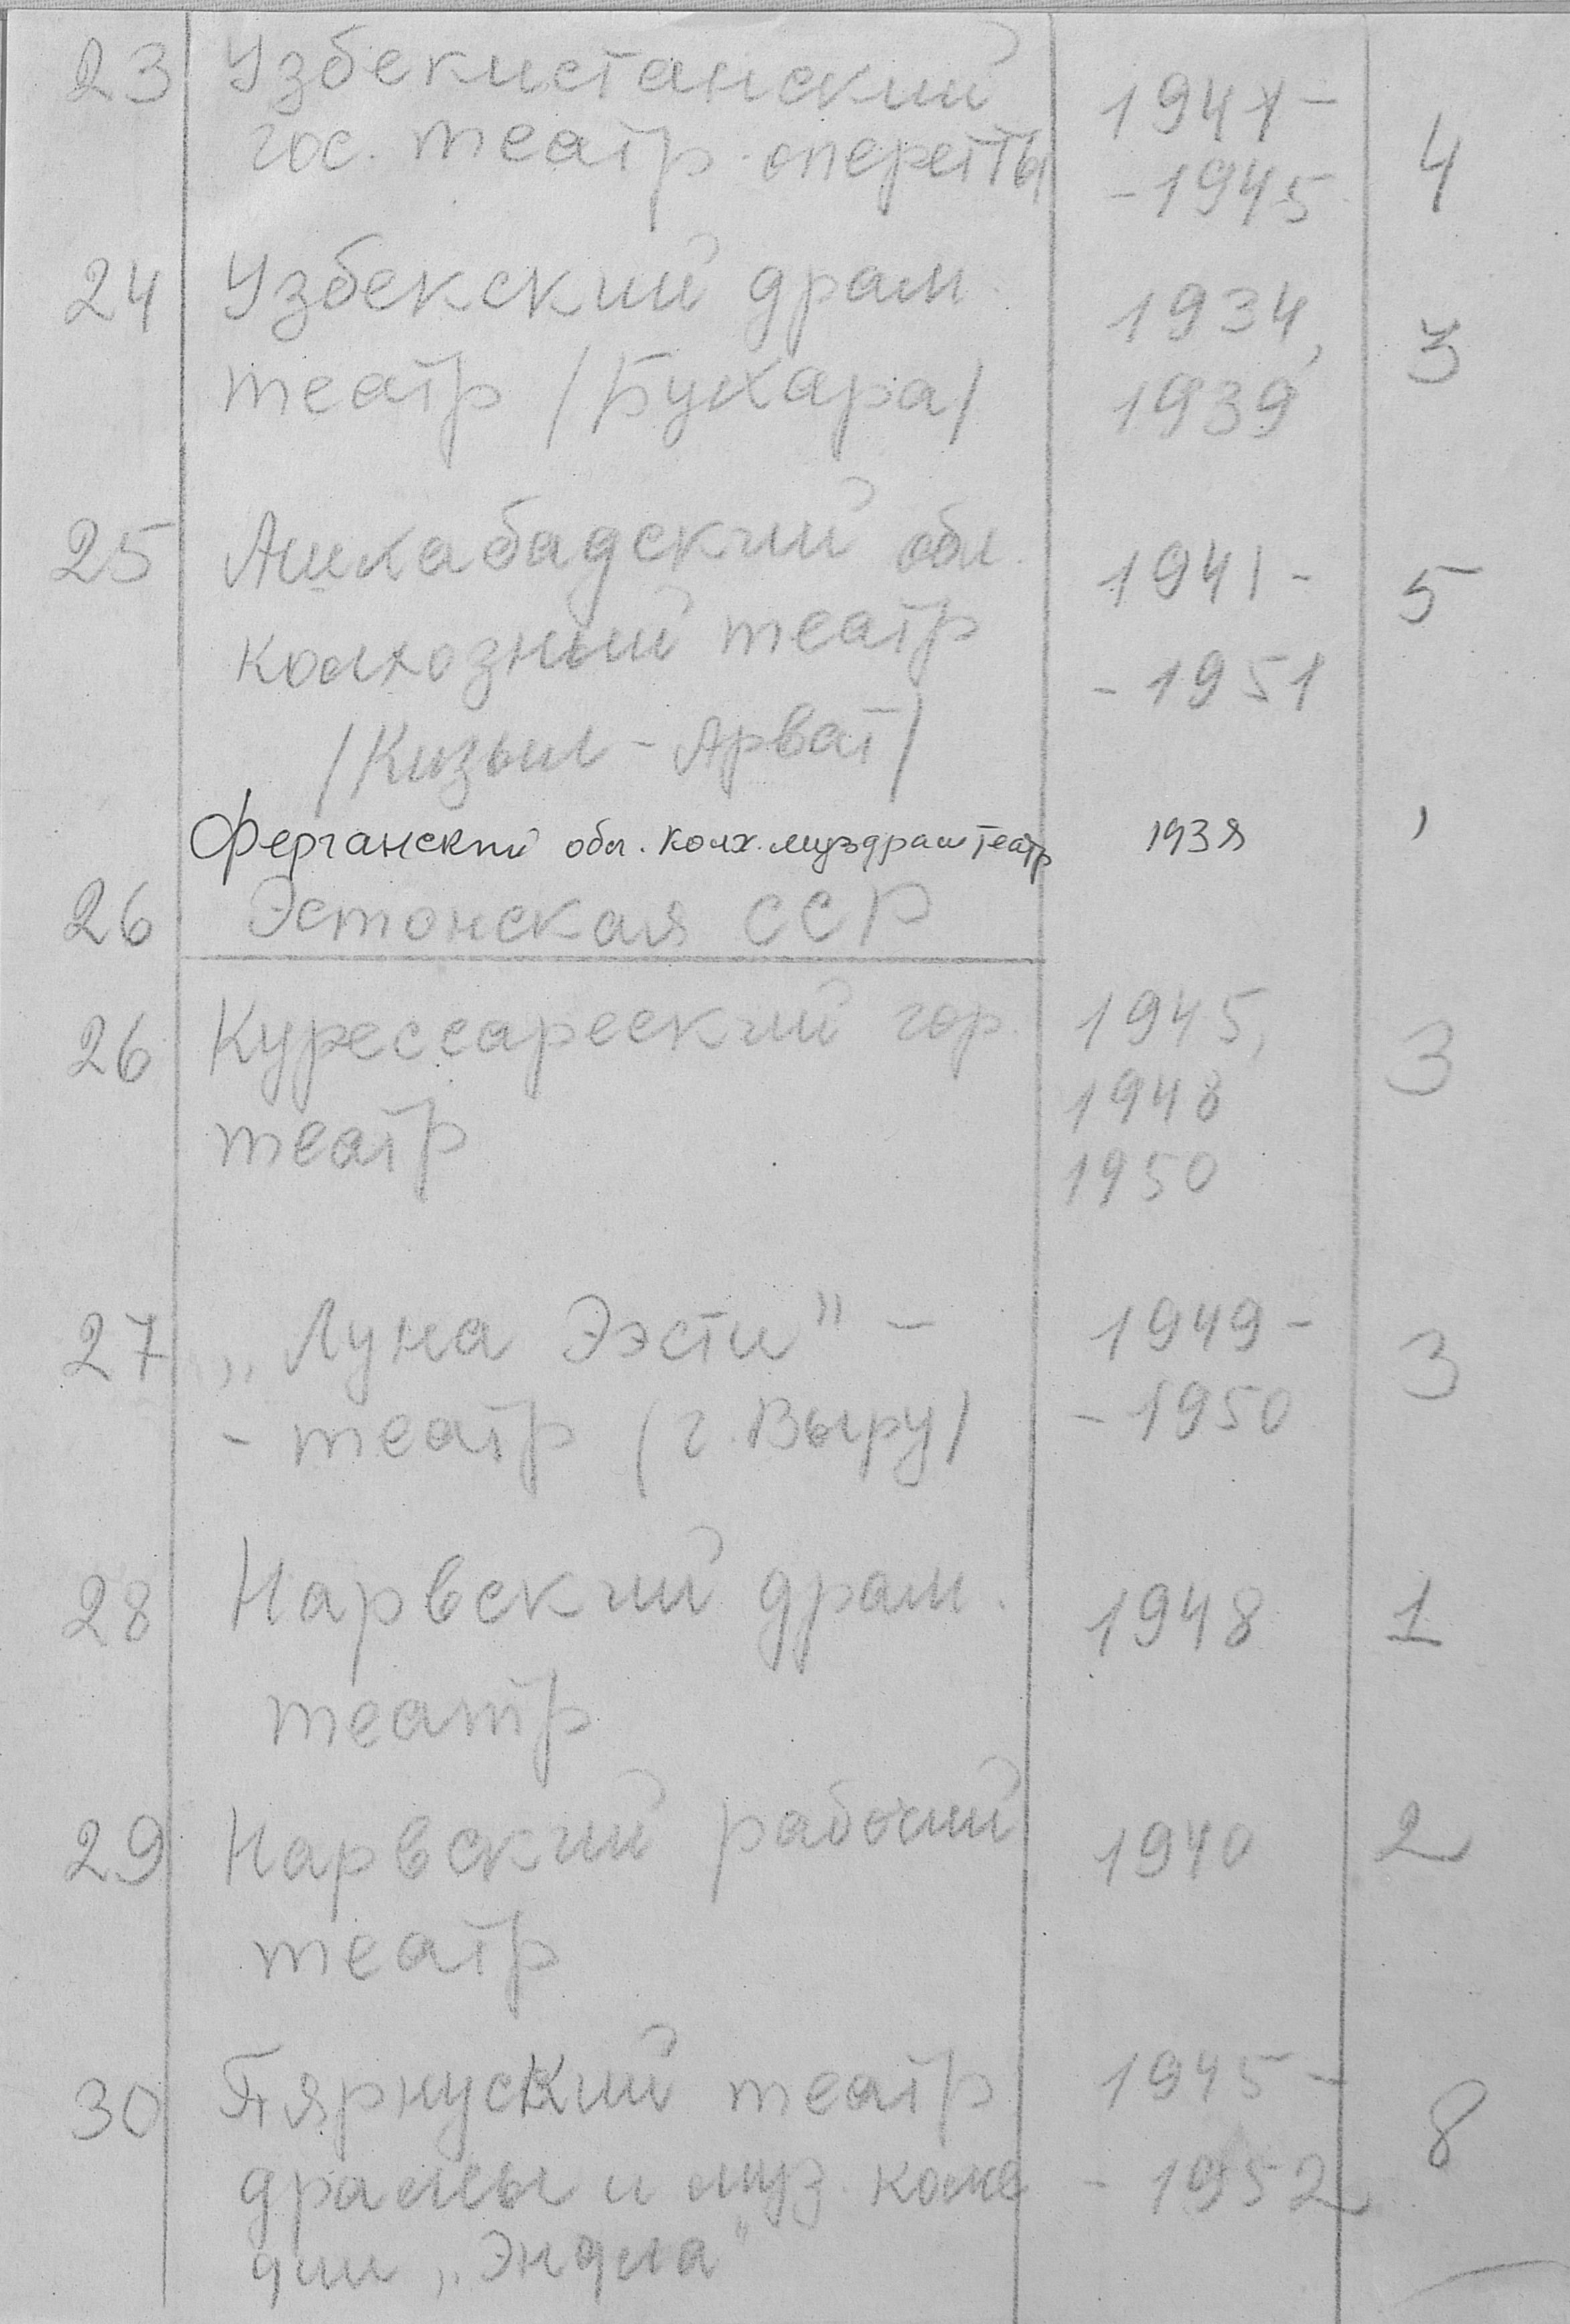 23 Узбекистанский
гос. театр. оперетты 1941-
-1945 4
24 Узбекский драм. 1934,
театр /Бухара/ 1939 3
25 Ашхабадский обл. 1941- 5
колхозный театр -1951
/Кизыл-Арват/
Ферганский обл. колх. муздрамтеатр 1938 1
26 Эстонская ССР
26 Курессареский гор. 1945, 3
театр 1948
1950
27 „Луна Ээсти" – 1949- 3
- театр (г. Выру/ -1950
28 Нарвский драм. 1948 1
театр
29 Нарвский рабочий 1940 2
театр
30 Пярнуский театр 1945- 8
драмы и муз. коме -1952
дии „Эндла"